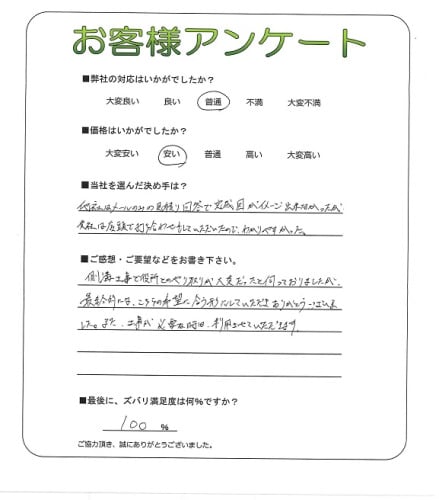 お客様アンケート
■弊社の対応はいかがでしたか？
大変良い 良い 普通 不満 大変不満
■価格はいかがでしたか？
大変安い 安い 普通 高い 大変高い
■当社を選んだ決め手は？
他社はメールのみの見積り回答で完成図がイメージ出来なかったが
来社は店頭で打ち合わせもしていただいたので、わかりやすかった。
■ご感想・ご要望などをお書き下さい。
側溝工事で役所とのやり取りが大変だったと伺っておりましたが、
最終的には、こちらの希望に合う形にしていただきありがとうございま
した。また、工事が必要な時は、利用させていただきます。
■最後に、ズバリ満足度は何%ですか？
100 %
ご協力頂き、誠にありがとうございました。